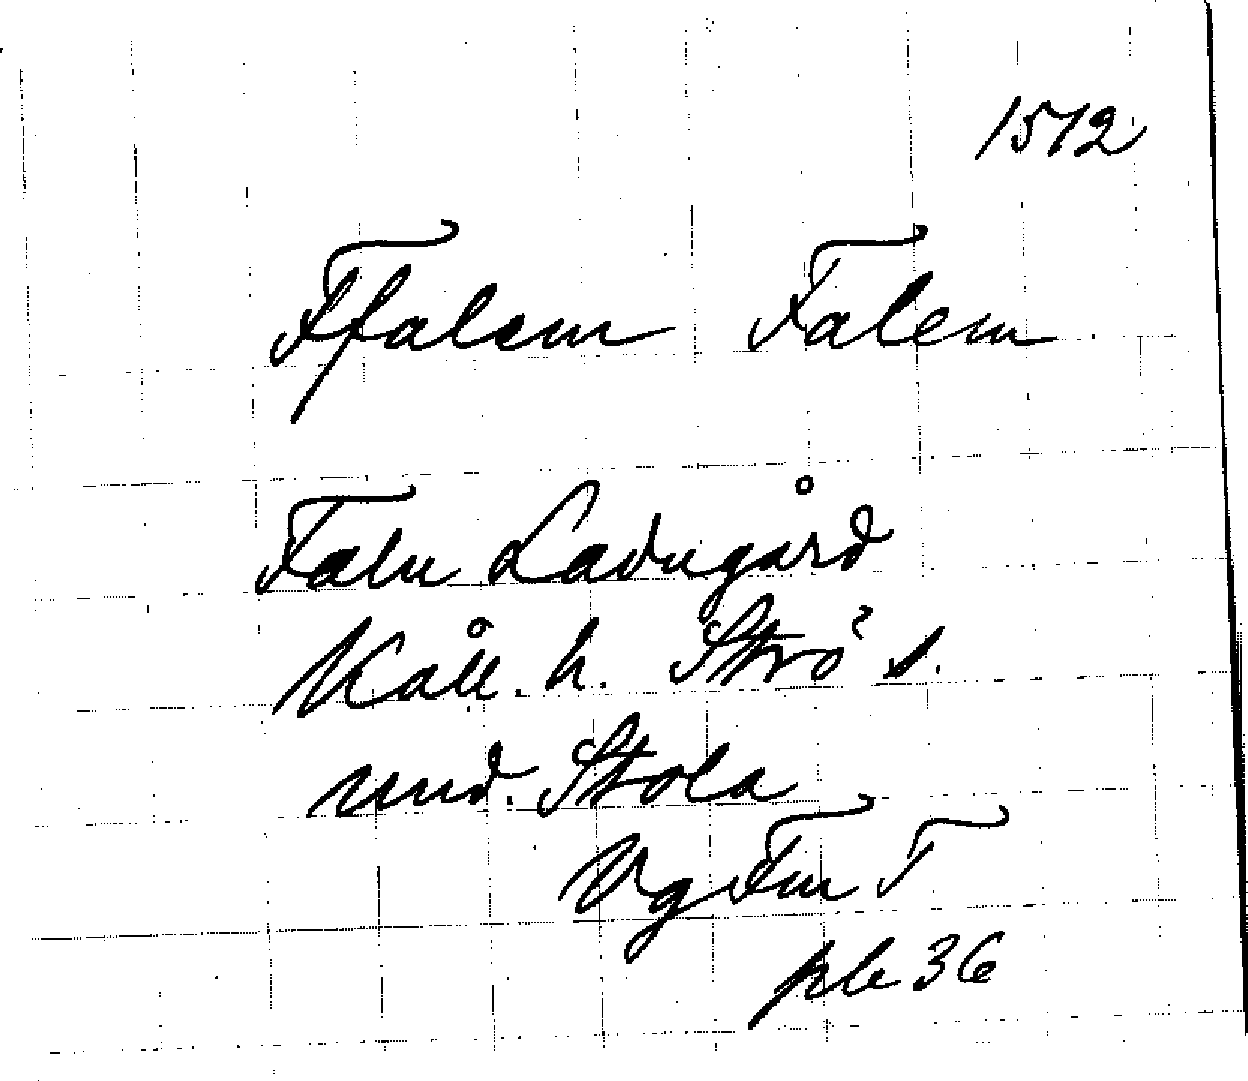 1572
Ffalem Falem
Falu Ladugård
Kåll. h. Strö s.
und. Stola
Vg Fm T
pb 36